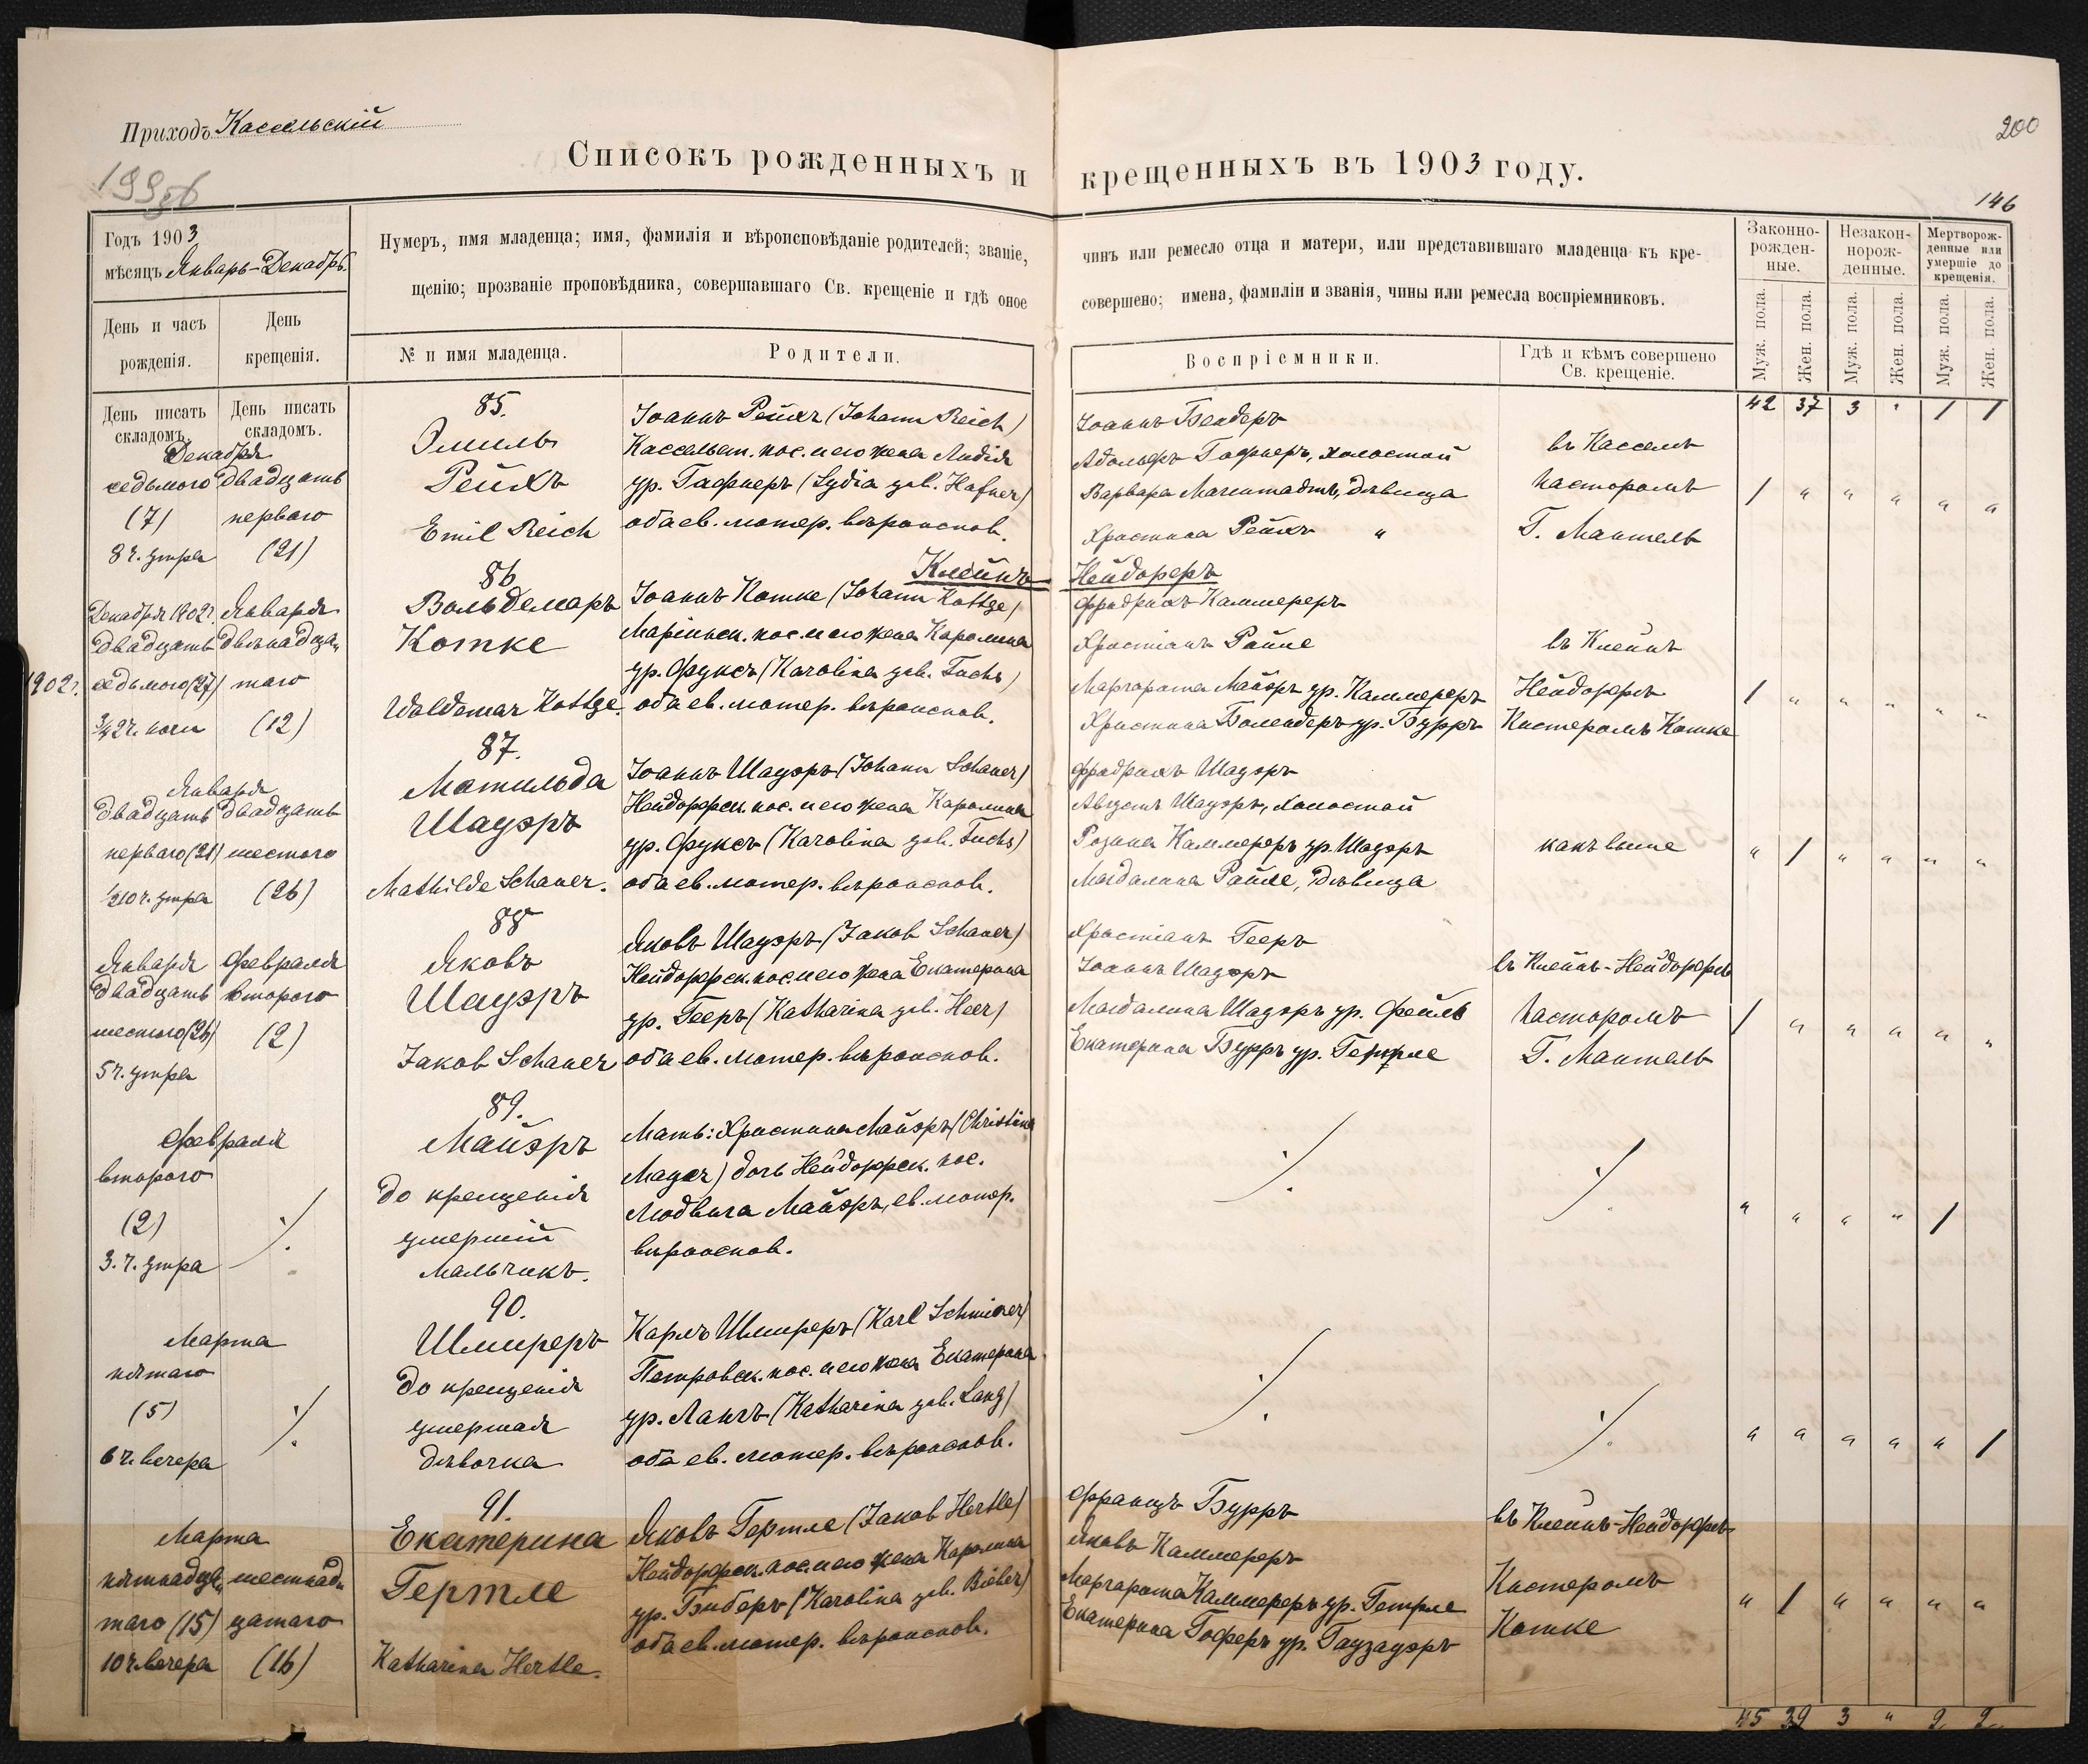 Приходъ Кассельскій
200
199об
146
Списокъ рожденныхъ и крещенныхъ въ 1903 году.
Годъ 1903
мѣсяцъ Январь-Декабрь.
Нумеръ, имя младенца; имя, фамилія и вѣроисповѣданіе родителей; званіе, чинъ или ремесло отца и матери, или представившаго младенца къ кре-
щенію; прозваніе проповѣдника, совершавшаго Св. крещеніе и гдѣ оное совершено; имена, фамиліи и званія, чины или ремесла воспріемниковъ.
Законно-
рожден-
ные.
Незакон-
норож-
денные.
Мертворож-
денные или
умершіе до
крещенія.
День и часъ
рожденія.
День
крещенія.
№ и имя младенца.
Родители.
Воспріемники.
Гдѣ и кѣмъ совершено
Св. крещеніе.
Муж. пола.
Жен. пола.
Муж. пола.
Жен. пола.
Муж. пола.
Жен. пола.
День писать
складомъ.
День писать
складомъ.
42 37 3 " 1 1
Декабря
седьмого
(7)
8 ч. утра
двадцать
перваго
(21)
85.
Эмиль
Рейхъ
Emil Reich
Іоаннъ Рейхъ (Johann Reich)
Кассельск. пос. и его жена Лидія
ур. Гафнеръ (Lydia geb. Hafner)
оба ев. лютер. вѣроиспов.
Іоаннъ Бендеръ
Адольфъ Гафнеръ, холостой
Варвара Магенштадтъ, дѣвица
Христина Рейхъ "
въ Кассель
Пасторомъ
Г. Мантель
1 " " " " "
Клейнъ Нейдорфъ
1902 г.
Декабря 1902 г.
двадцать
седьмого (27)
3/4 2 ч. ночи
Января
двѣнадца-
таго
(12)
86
Вольдемаръ
Котке
Woldemar Kottge.
Іоаннъ Котке (Johann Kottge)
Маріинск. пос. и его жена Каролина
ур. Фуксъ (Karolina geb. Fuchs)
оба ев. лютер. вѣроиспов.
Фридрихъ Каммереръ
Христіанъ Райле
Маргарета Майэръ ур. Каммереръ
Христина Болендеръ ур. Бурръ
въ Клейнъ
Нейдорфѣ
Кистеромъ Котке
1 " " " " "
Января
двадцать
перваго (21)
1/2 10 ч. утра
двадцать
шестого
(26)
87.
Матильда
Шауэръ
Mathilde Schauer.
Іоаннъ Шауэръ (Johann Schauer)
Нейдорфск. пос. и его жена Каролина
ур. Фуксъ (Karolina geb. Fuchs)
оба ев. лютер. вѣроиспов.
Фридрихъ Шауэръ
Августъ Шауэръ, холостой
Розина Каммереръ ур. Шауэръ
Магдалина Райле, дѣвица
какъ выше
" 1 " " " "
Января
двадцать
шестого (26)
5 ч. утра
Февраля
второго
(2)
88
Яковъ
Шауэръ
Jakob Schauer
Яковъ Шауэръ (Jakob Schauer)
Нейдорфск. пос. и его жена Екатерина
ур. Гееръ (Katharina geb. Heer)
оба ев. лютер. вѣроиспов.
Христіанъ Гееръ
Іоаннъ Шауэръ
Магдалина Шауэръ ур. Фейль
Екатерина Бурръ ур. Гертле
въ Клейнъ-Нейдорфѣ
Пасторомъ
Г. Мантель
1 " " " " "
Февраля
второго
(2)
3. ч. утра
89.
Майэръ
до крещенія
умершій
мальчикъ.
Мать: Христина Майэръ (Christina
Mayer) дочь Нейдорфск. пос.
Людвига Майэръ, ев. лютер.
вѣроиспов.
" " " " 1
Марта
пятаго
(5)
6 ч. вечера
90.
Шмиреръ
до крещенія
умершая
дѣвочка
Карлъ Шмиреръ (Karl Schmierer)
Петровск. пос. и его жена Екатерина
ур. Лангъ (Katharina geb. Lang)
оба ев. лютер. вѣроиспов.
" " " " " 1
Марта
пятнадца-
таго (15)
10 ч. вечера
шестнад-
цатаго
(16)
91.
Екатерина
Гертле
Katharina Hertle.
Яковъ Гертле (Jakob Hertle)
Нейдорфск. пос. и его жена Каролина
ур. Биберъ (Karolina geb. Bieber)
оба ев. лютер. вѣроиспов.
Францъ Бурръ
Яковъ Каммереръ
Маргарета Каммереръ ур. Гертле
Екатерина Гоферъ ур. Гаузауэръ
въ Клейнъ-Нейдорфѣ
Кистеромъ
Котке
" 1 " " " "
45 39 3 " 2 2